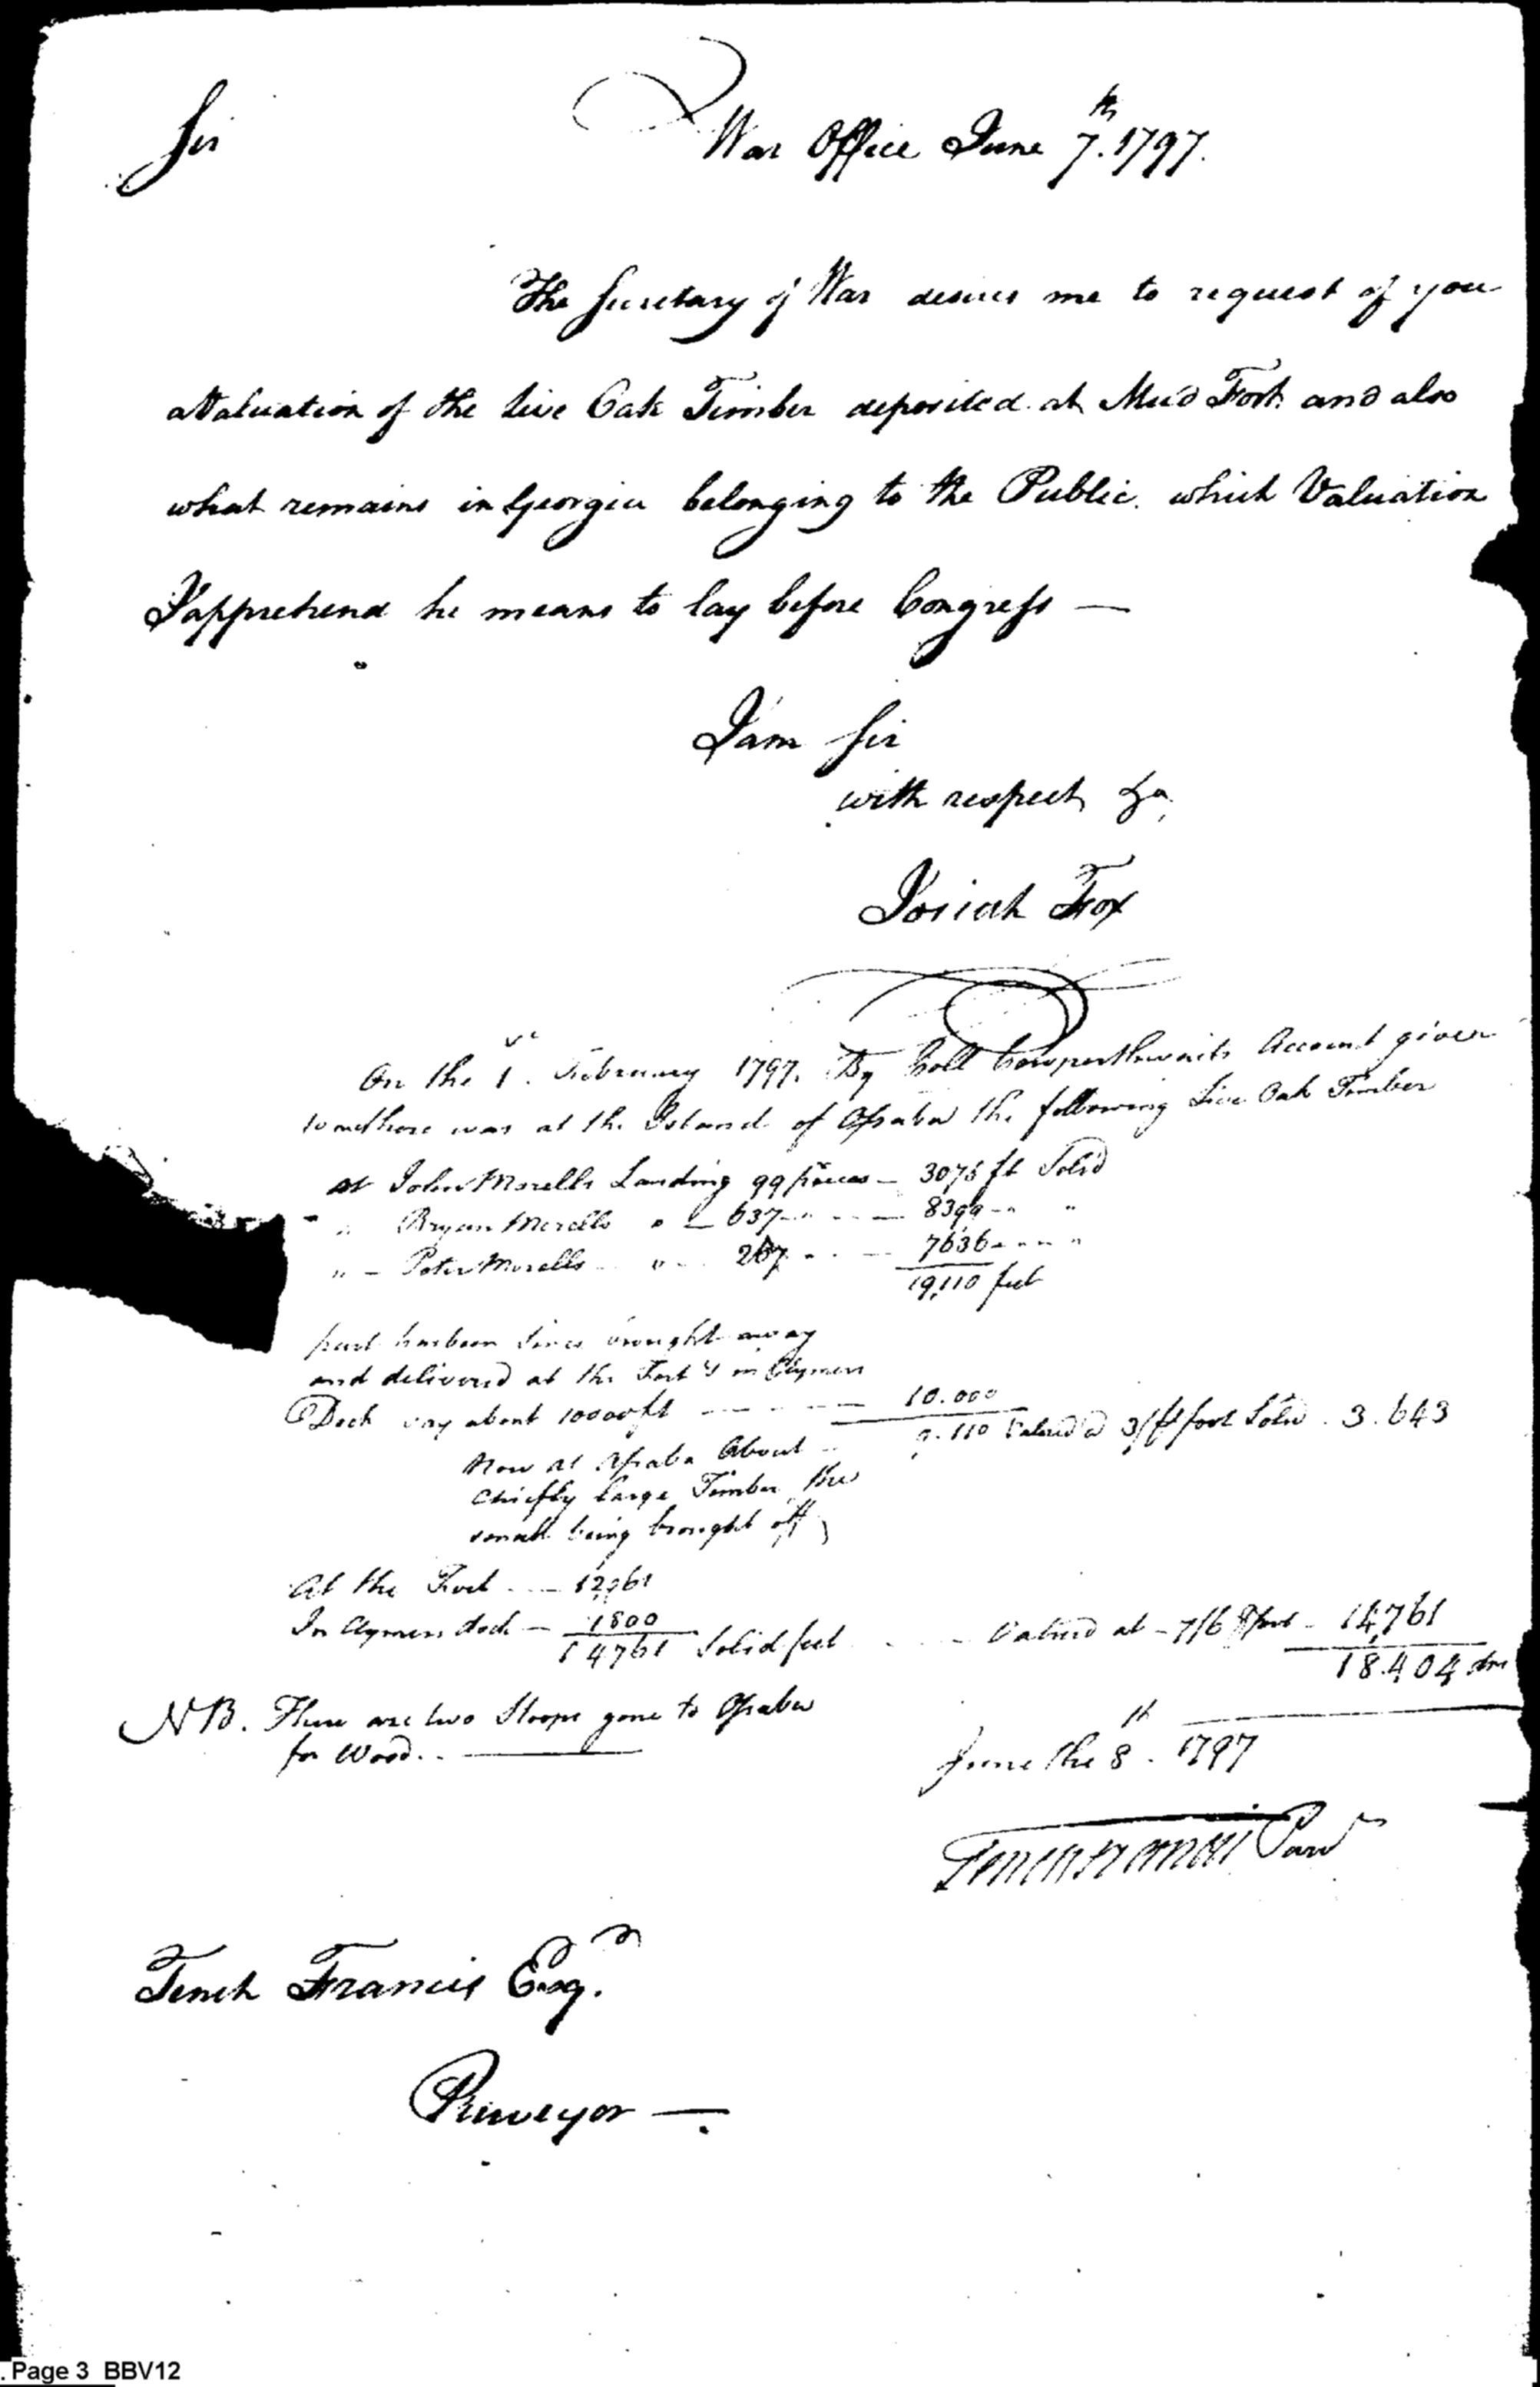 Sir
War Office June 7th. 1797.
The Secretary of War desires me to request of you
a Valuation of the Live Oak Timber deposited at Mud Fort and also
what remains in Georgia belonging to the Public. which Valuation
I apprehend he means to lay before Congress —
I am Sir
with respect &a,
Josiah Fox
On the 1st. February 1797. By Coll Cowperthwaits Account given
to me there was at the Island of Ossaba the following Live Oak Timber
at John Morells Landing 99 pieces — 3075 ft Solid
" Bryan Morells " — 637 " — 8399 — " "
" — Peter Morells " 267 " — 7636 - " "
19,110 feet
part has been since brought away
and delivered at the Fort & in Clymers
Dock say about 10000 ft — 10.000
Now at Ossaba About 9.110 Valued @ 3/ foot Solid . 3.643
Chiefly large Timber the
small being brought off
At the Fort — 12961
In Clymers dock — 1800
14761 Solid feet — Valued at — 7/6 foot — 14,761
18.404
NB. There are two Sloops gone to Ossaba
for Wood. —
June the 8th. 1797
Tench Francis
Tench Francis Esqr.
Purveyor —
. Page 3 BBV12